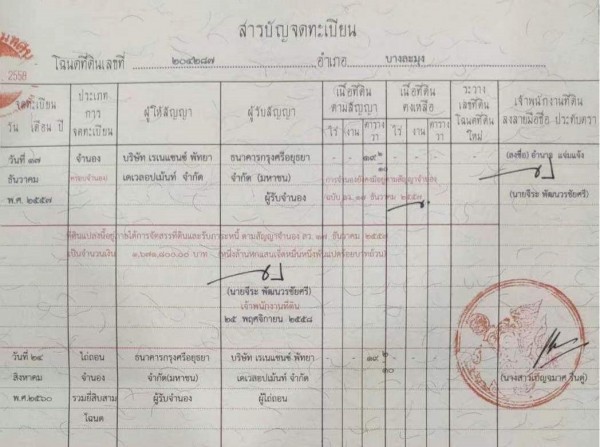 สารบัญจดทะเบียน
โฉนดที่ดินเลขที่ ๒๐๔๒๘๗ อำเภอ บางละมุง
2558
จดทะเบียน
วัน เดือน ปี
ประเภท
การ
จดทะเบียน
ผู้ให้สัญญา
ผู้รับสัญญา
เนื้อที่ดิน
ตามสัญญา
ไร่ งาน ตาราง
วา
เนื้อที่ดิน
คงเหลือ
ไร่ งาน ตาราง
วา
ระวาง
เลขที่ดิน
โฉนดที่ดิน
ใหม่
เจ้าพนักงานที่ดิน
ลงลายมือชื่อ ประทับตรา
วันที่ ๑๗ จำนอง บริษัท เรเนแซนซ์ พัทยา ธนาคารกรุงศรีอยุธยา - - ๑๙ ๒/๑๐ - - - (ลงชื่อ) อำนาจ แจ่มแจ้ง
ธันวาคม ครอบจำนอง เดเวลอปเม้นท์ จำกัด จำกัด (มหาชน) การจำนองยังคงมีอยู่ตามสัญญาจำนอง
พ.ศ.๒๕๕๗ ผู้รับจำนอง ฉบับ ลว. ๑๗ ธันวาคม ๒๕๕๗ (นายจีระ พัฒนวรชัยศรี)
ที่ดินแปลงนี้อยู่ภายใต้การจัดสรรที่ดินและรับภาระหนี้ ตามสัญญาจำนอง ลว. ๑๗ ธันวาคม ๒๕๕๗
เป็นจำนวนเงิน ๑,๖๗๑,๘๐๐.๐๐ บาท (หนึ่งล้านหกแสนเจ็ดหมื่นหนึ่งพันแปดร้อยบาทถ้วน)
(นายจีระ พัฒนวรชัยศรี)
เจ้าพนักงานที่ดิน
๒๕ พฤศจิกายน ๒๕๕๘
วันที่ ๒๔ ไถ่ถอน ธนาคารกรุงศรีอยุธยา บริษัท เรเนแซนซ์ พัทยา - - ๑๙ ๒/๑๐ - - -
สิงหาคม จำนอง จำกัด(มหาชน) เดเวลอปเม้นท์ จำกัด
พ.ศ.๒๕๖๐ รวมยี่สิบสาม ผู้รับจำนอง ผู้ไถ่ถอน
โฉนด